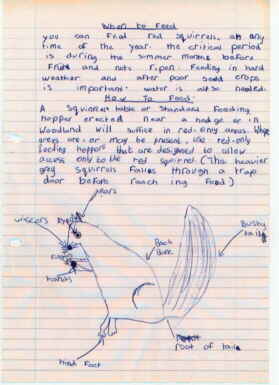 When to Feed
you can Feed red squirrels at any
time of the year. the critical period
is during the summer months before
Fruits and nuts ripen. Feeding in hard
weather and after poor seed crops
is important. water is also needed.
How To Feed
A squirrel table or Standard Feeding
hopper erected near a hedge or in
woodland will suffice in red-only areas.
greys are or may be present, use red-only
feeding hoppers that are designed to allow
access only to the red squirrel (the heavier
grey squirrels Falls through a trap
door before reaching Food)
ears
wiskers
hands
Back
Bone
Bushy
tail
root of tail
Hind Foot